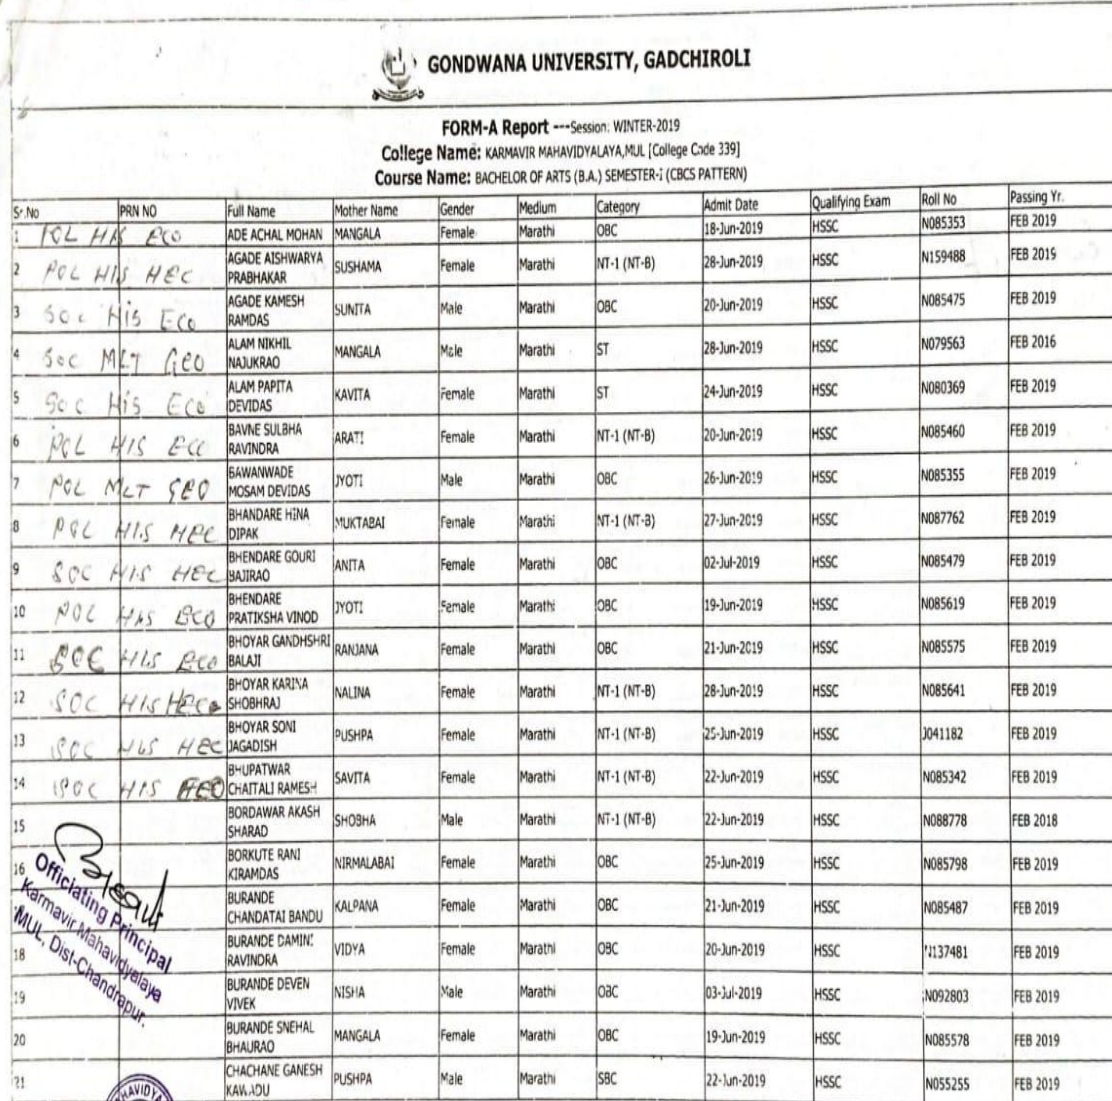 GONDWANA UNIVERSITY, GADCHIROLI
FORM-A Report ---Session: WINTER-2019
College Name: KARMAVIR MAHAVIDYALAYA,MUL [College Code 339]
Course Name: BACHELOR OF ARTS (B.A.) SEMESTER-I (CBCS PATTERN)
Sr.No PRN NO Full Name Mother Name Gender Medium Category Admit Date Qualifying Exam Roll No Passing Yr.
1 POL HIS ECO ADE ACHAL MOHAN MANGALA Female Marathi OBC 18-Jun-2019 HSSC N085353 FEB 2019
2 POL HIS HEC AGADE AISHWARYA PRABHAKAR SUSHAMA Female Marathi NT-1 (NT-B) 28-Jun-2019 HSSC N159488 FEB
3 Soc His Eco AGADE KAMESH RAMDAS SUNITA Male Marathi OBC 20-Jun-2019 HSSC N085475 FEB 2019
4 Soc MLT GEO ALAM NIKHIL NAJUKRAO MANGALA Male Marathi ST 28-Jun-2019 HSSC N079563 FEB 2016
5 Soc His Eco ALAM PAPITA DEVIDAS KAVITA Female Marathi ST 24-Jun-2019 HSSC N080369 FEB 2019
6 POL HIS ECO BAVNE SULBHA RAVINDRA ARATI Female Marathi NT-1 (NT-B) 20-Jun-2019 HSSC N085460 FEB 2019
7 POL MLT GEO BAWANWADE MOSAM DEVIDAS JYOTI Male Marathi OBC 26-Jun-2019 HSSC N085355 FEB 2019
8 POL HIS HEC BHANDARE HINA DIPAK MUKTABAI Female Marathi NT-1 (NT-B) 27-Jun-2019 HSSC N087762 FEB 2019
9 SOC HIS HEC BHENDARE GOURI BAJIRAO ANITA Female Marathi OBC 02-Jul-2019 HSSC N085479 FEB 2019
10 POL HIS ECO BHENDARE PRATIKSHA VINOD JYOTI Female Marathi OBC 19-Jun-2019 HSSC N085619 FEB 2019
11 SOC HIS ECO BHOYAR GANDHSHRI BALAJI RANJANA Female Marathi OBC 21-Jun-2019 HSSC N085575 FEB 2019
12 SOC HIS HEC BHOYAR KARINA SHOBHRAJ NALINA Female Marathi NT-1 (NT-B) 28-Jun-2019 HSSC N085641 FEB 2019
13 SOC HIS HEC BHOYAR SONI JAGADISH PUSHPA Female Marathi NT-1 (NT-B) 25-Jun-2019 HSSC J041182 FEB 2019
14 SOC HIS BHUPATWAR CHAITALI RAMESH SAVITA Female Marathi NT-1 (NT-B) 22-Jun-2019 HSSC N085342 FEB 2019
15 BORDAWAR AKASH SHARAD SHOBHA Male Marathi NT-1 (NT-B) 22-Jun-2019 HSSC N088778 FEB 2018
16 BORKUTE RANI KIRAMDAS NIRMALABAI Female Marathi OBC 25-Jun-2019 HSSC N085798 FEB 2019
BURANDE CHANDATAI BANDU KALPANA Female Marathi OBC 21-Jun-2019 HSSC N085487 FEB 2019
18 BURANDE DAMINI RAVINDRA VIDYA Female Marathi OBC 20-Jun-2019 HSSC FEB 2019
19 BURANDE DEVEN VIVEK NISHA Male Marathi OBC 03-Jul-2019 HSSC N092803 FEB 2019
20 BURANDE SNEHAL BHAURAO MANGALA Female Marathi OBC 19-Jun-2019 HSSC N085578 FEB 2019
21 CHACHANE GANESH PUSHPA Male Marathi SBC 22-Jun-2019 HSSC N055255 FEB 2019
Officiating Principal
Karmavir Mahavidyalaya
MUL, Dist-Chandrapur.